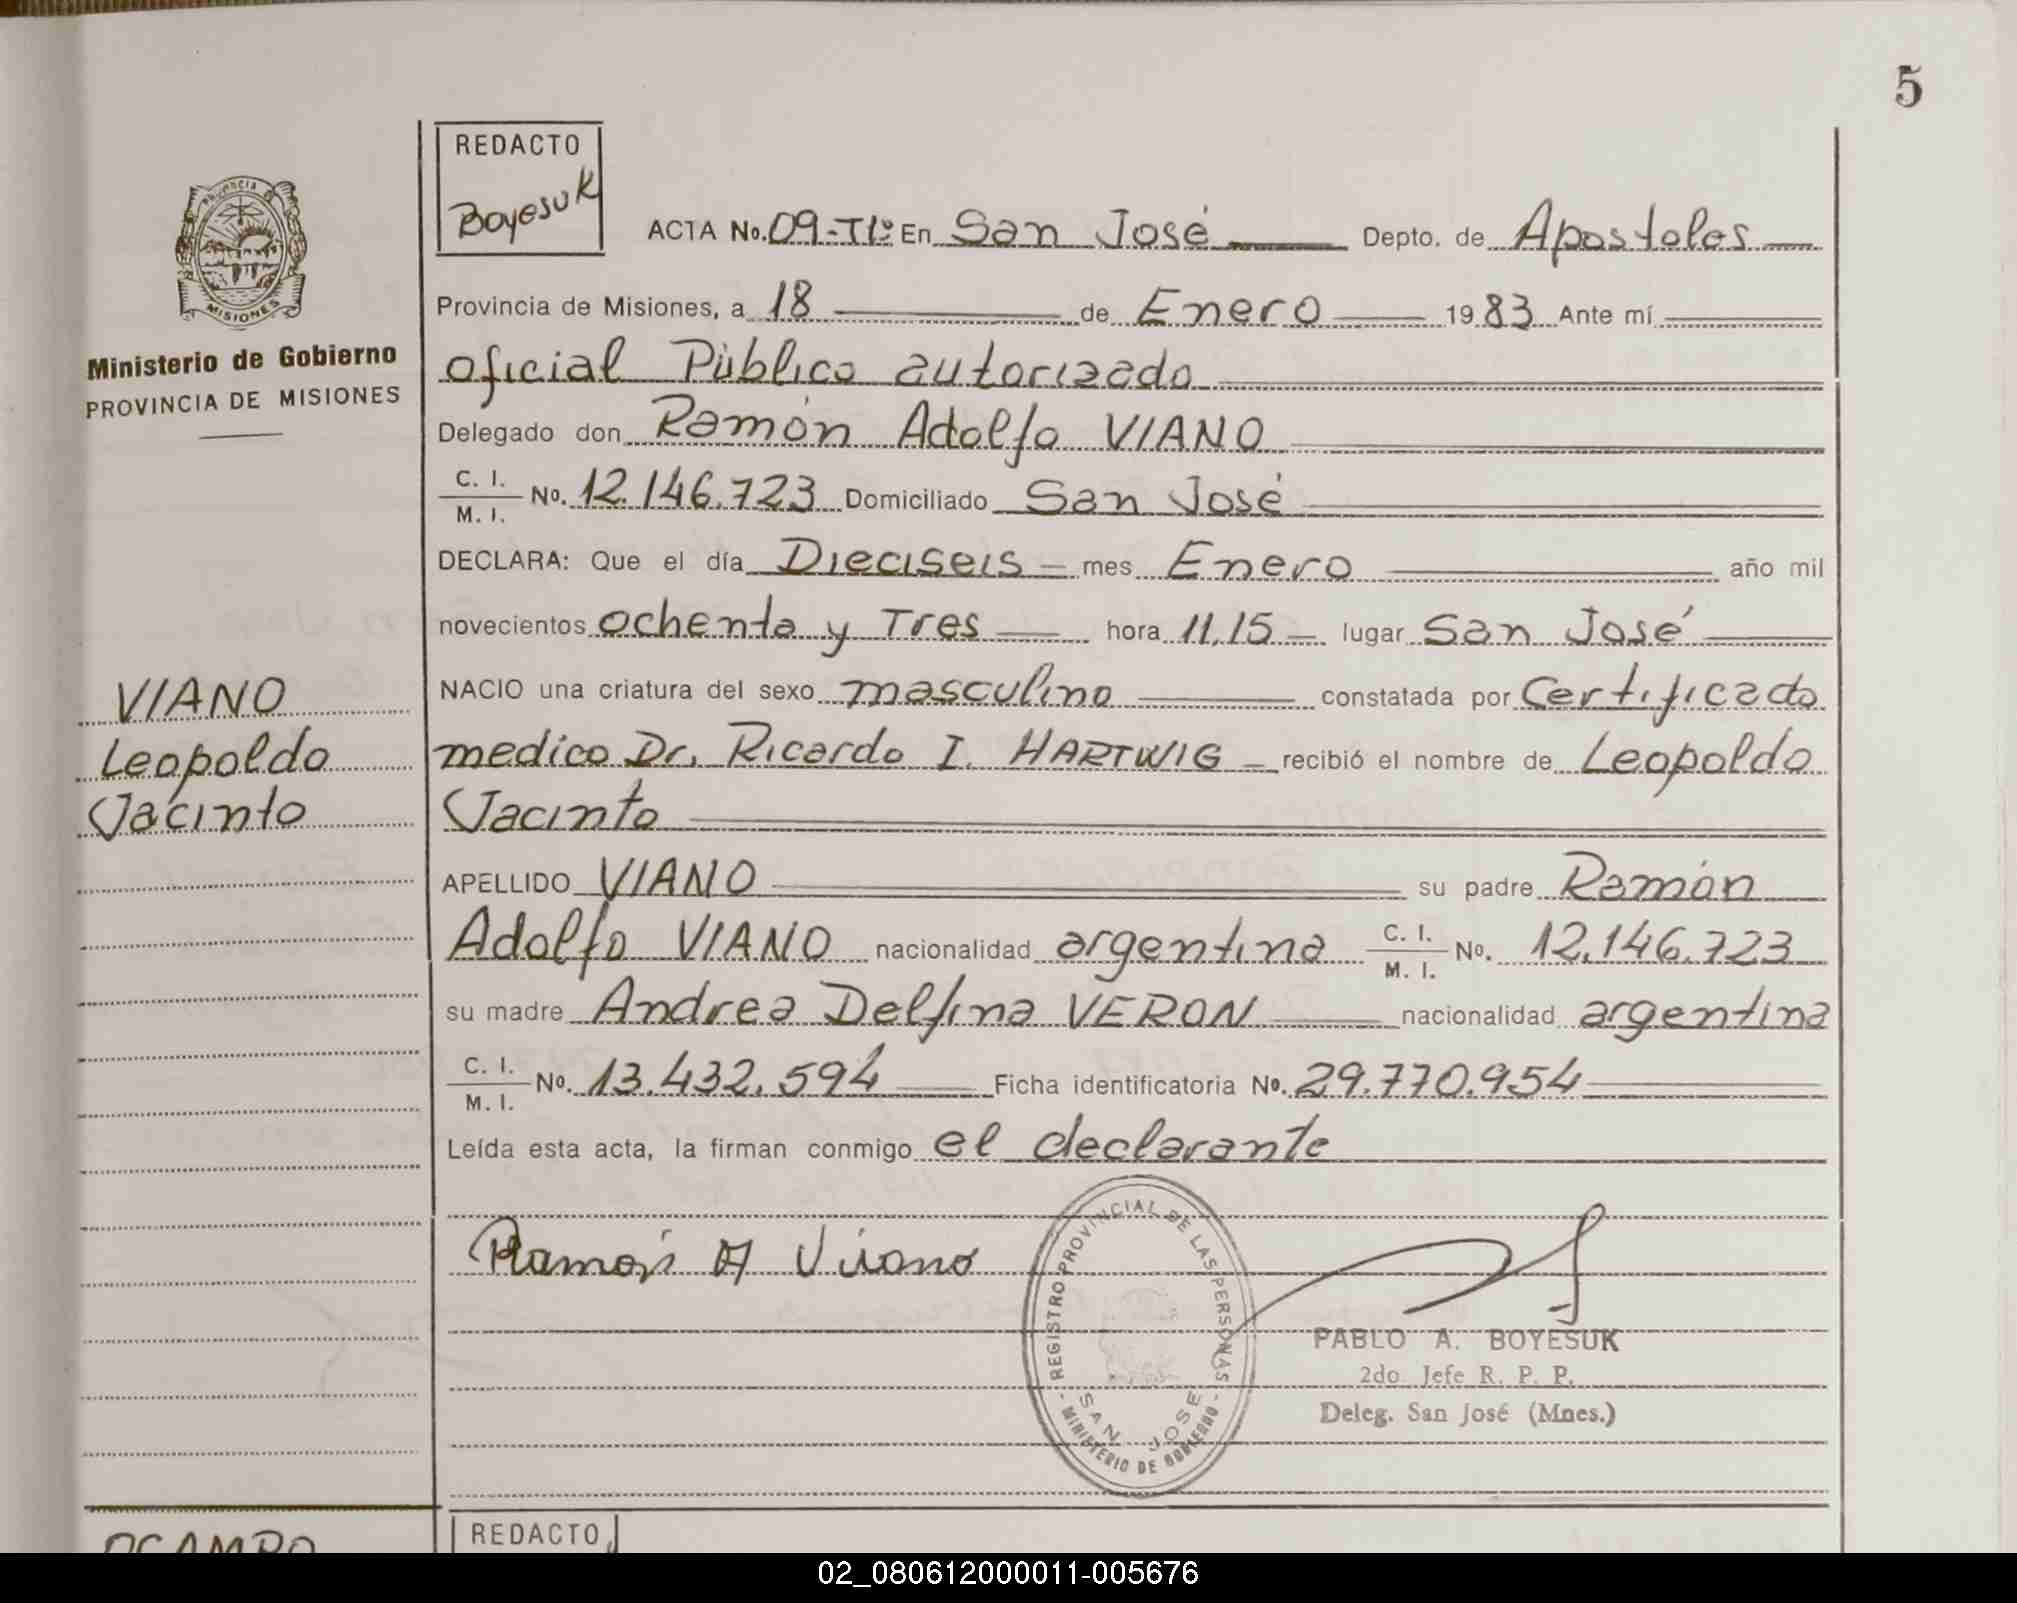 5
REDACTO
Boyesuk
ACTA No. 09-T1º En San José Depto. de Apostoles
PROVINCIA
MISIONES
Ministerio de Gobierno
PROVINCIA DE MISIONES
Provincia de Misiones, a 18 de Enero 1983 Ante mí
oficial Público autorizado
Delegado don Ramón Adolfo VIANO
C. I. / M. I. No. 12.146.723 Domiciliado San José
DECLARA: Que el día Dieciseis mes Enero año mil
novecientos ochenta y Tres hora 11,15 lugar San José
NACIO una criatura del sexo masculino constatada por Certificado
medico Dr. Ricardo I. HARTWIG recibió el nombre de Leopoldo
Jacinto
VIANO
Leopoldo
Jacinto
APELLIDO VIANO su padre Ramón
Adolfo VIANO nacionalidad argentina C. I. / M. I. No. 12.146.723
su madre Andrea Delfina VERON nacionalidad argentina
C. I. / M. I. No. 13.432.594 Ficha identificatoria No. 29.770.954
Leída esta acta, la firman conmigo el declarante
Ramón A Viano
REGISTRO PROVINCIAL DE LAS PERSONAS
SAN JOSE
MINISTERIO DE GOBIERNO
PABLO A. BOYESUK
2do. Jefe R. P. P.
Deleg. San José (Mnes.)
OCAMPO
REDACTO
02_080612000011-005676